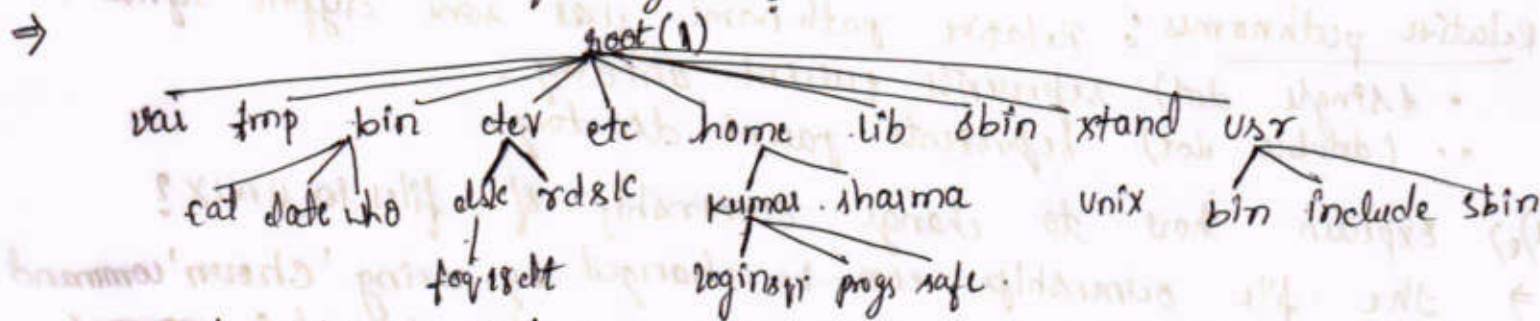 ⇒ root(1)
var tmp bin dev etc home lib sbin xtand usr
cat date who dsk rdslc kumar sharma unix bin include sbin
foq18dt progs safe.